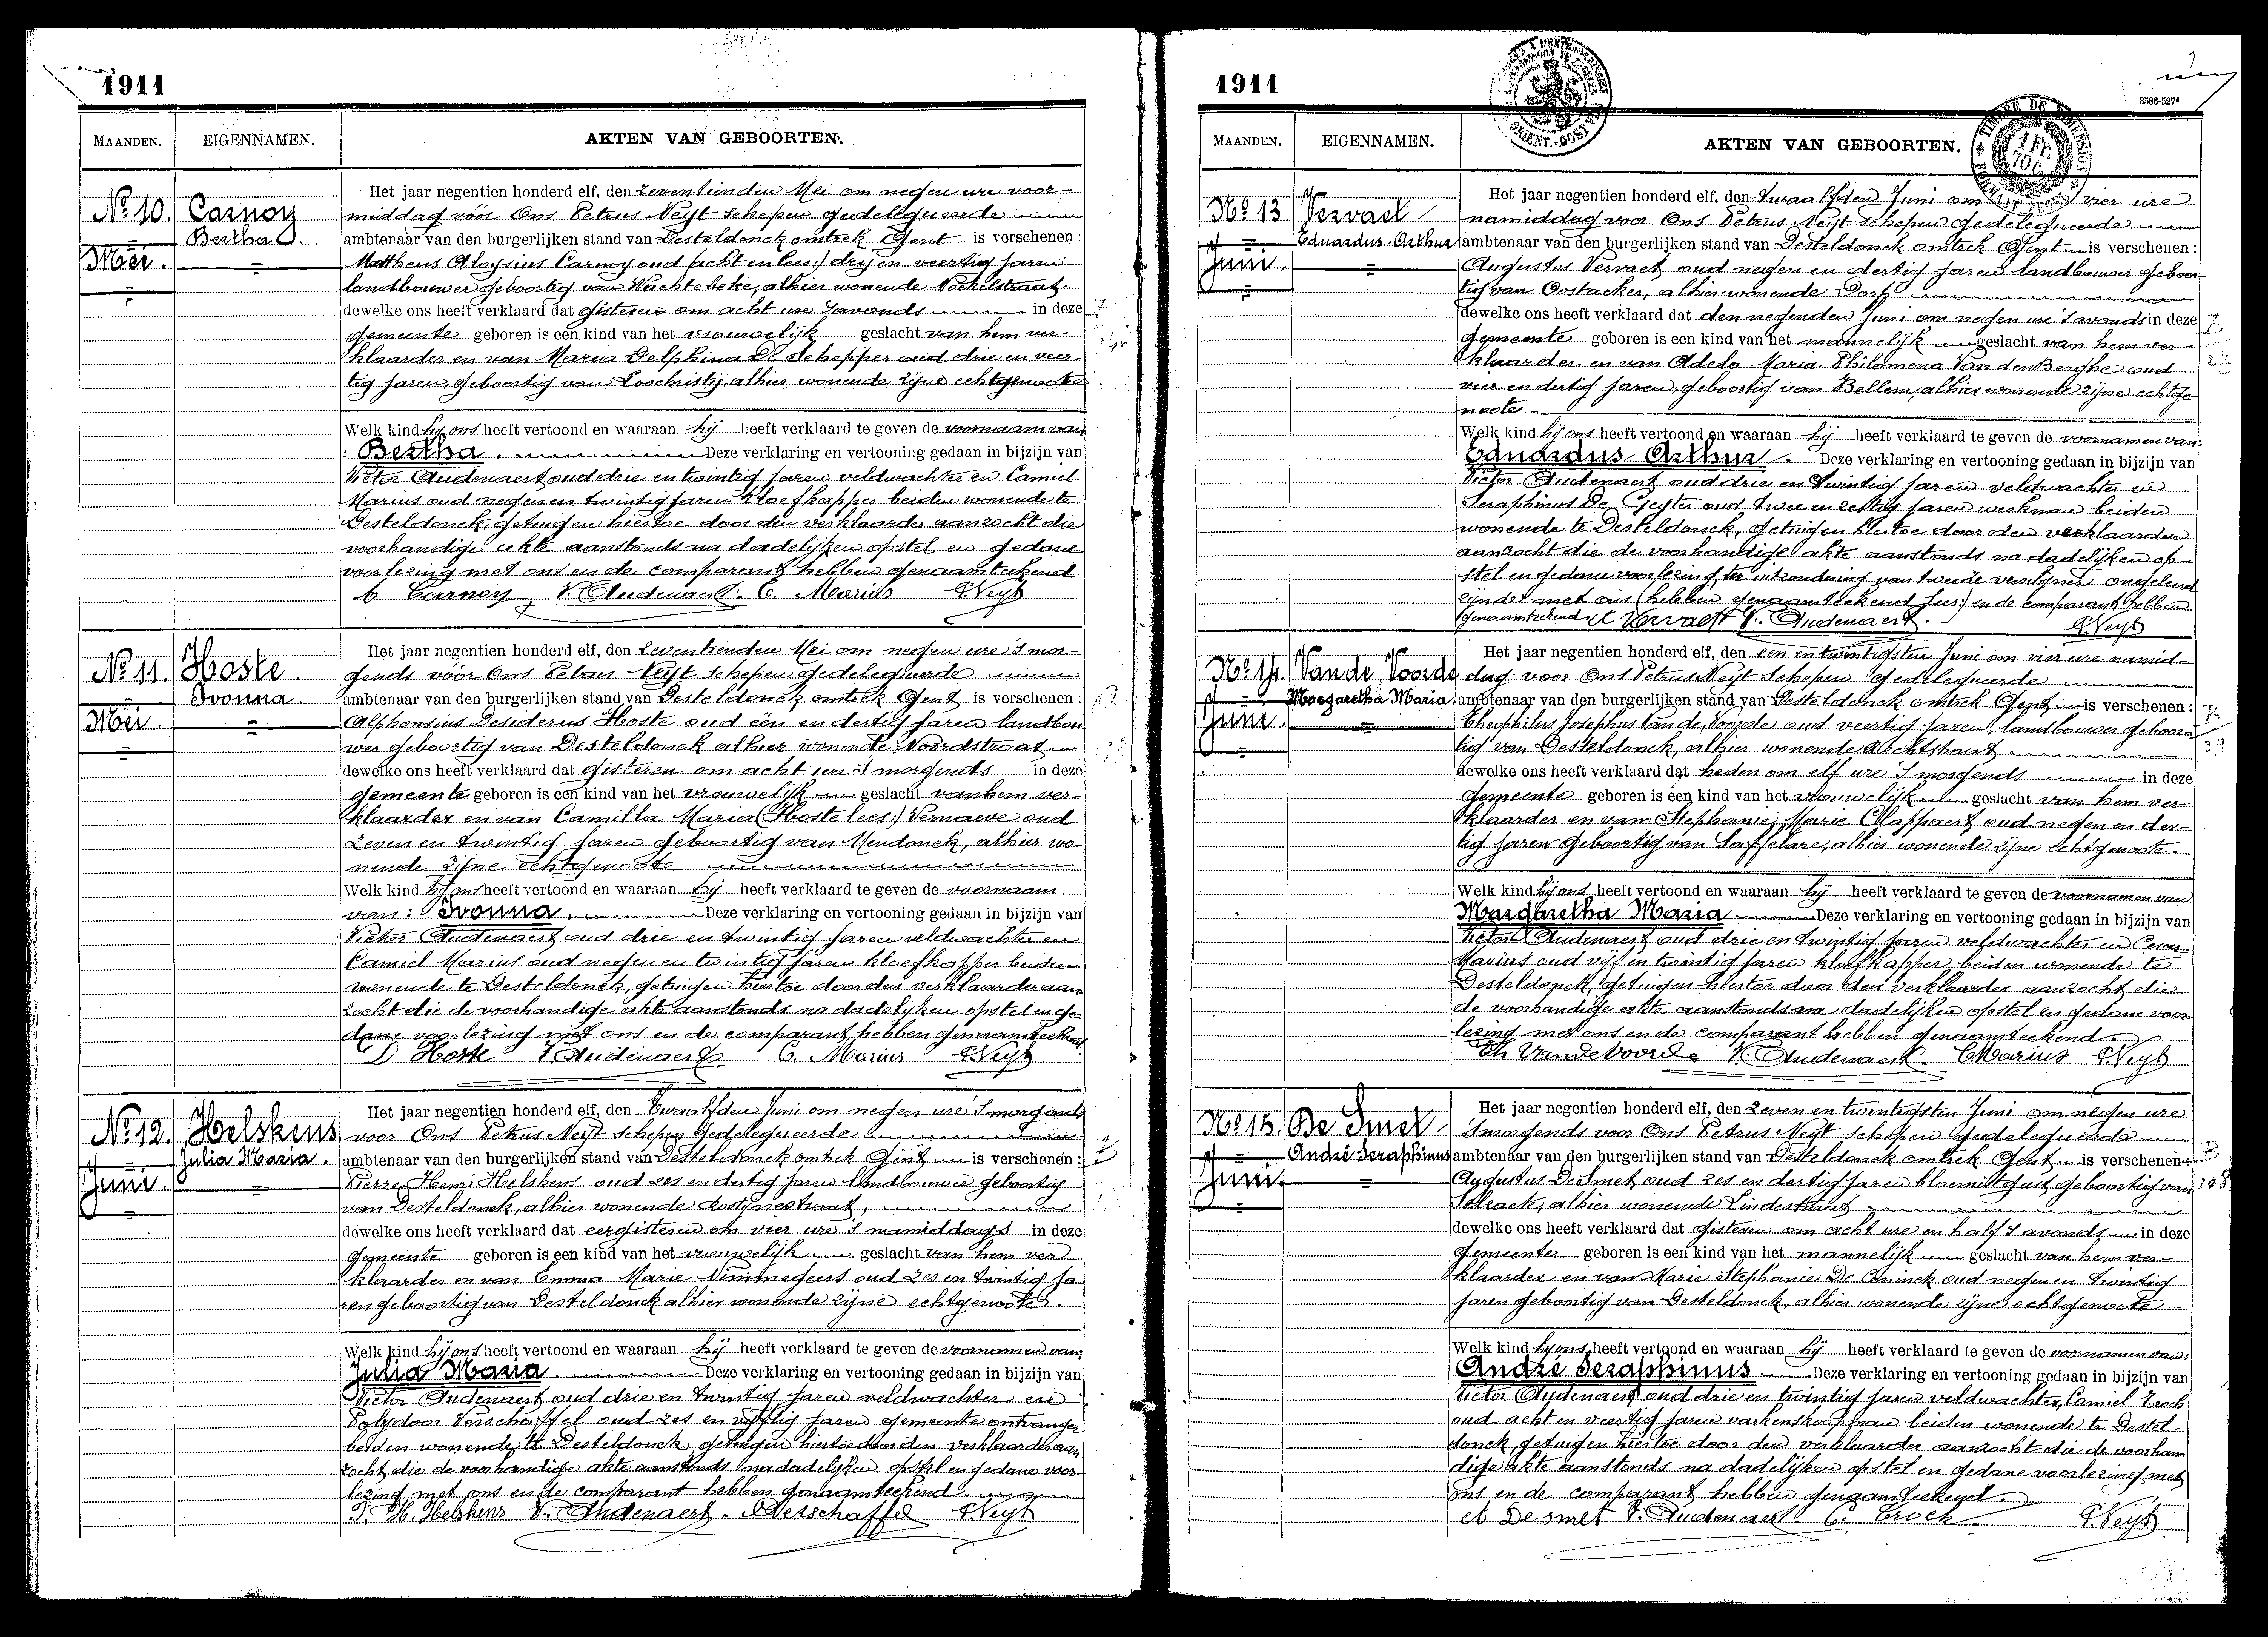 1911
MAANDEN. EIGENNAMEN. AKTEN VAN GEBOORTEN.
No 10. Carnoy
Bertha
Mei.
Het jaar negentien honderd elf, den zeventienden Mei om negen ure voor-
middag vóór Ons Petrus Neyt schepen gedelegueerde
ambtenaar van den burgerlijken stand van Desteldonck omtrek Gent is verschenen:
Mattheus Aloysius Carnoy oud (acht en lees:) dry en veertig jaren
landbouwer geboortig van Wachtebeke, alhier wonende
dewelke ons heeft verklaard dat gisteren om acht ure 's avonds in deze
gemeente geboren is een kind van het vrouwelijk geslacht van hem ver-
klaarder en van Maria Delphina De Schepper oud drie en veer-
tig jaren geboortig van Loochristij, alhier wonende zijne echtgenoote
Welk kind hij ons heeft vertoond en waaraan hij heeft verklaard te geven de voornaam van
: Bertha. Deze verklaring en vertooning gedaan in bijzijn van
Victor Audenaert oud drie en twintig jaren veldwachter en Camiel
Marius oud negen en twintig jaren kloefkapper beiden wonende te
Desteldonck, getuigen hiertoe door den verklaarder aanzocht die
voorhandige akte aanstonds na dadelijken opstel en gedane
voorlezing met ons en de comparant hebben genaamteekend
Carnoy V. Audenaert. C. Marius P. Neyt
No 11. Hoste
Ivonna.
Mei
Het jaar negentien honderd elf, den zeventienden Mei om negen ure 's mor-
gends vóór Ons Petrus Neyt schepen gedelegueerde
ambtenaar van den burgerlijken stand van Desteldonck omtrek Gent is verschenen:
Alphonsius Desiderius Hoste oud één en dertig jaren landbou
wer geboortig van Desteldonck alhier wonende Noordstraat
dewelke ons heeft verklaard dat gisteren om acht ure 's morgends in deze
gemeente geboren is een kind van het vrouwelijk geslacht van hem ver-
klaarder en van Camilla Maria (Hoste lees:) Vernaeve oud
zeven en twintig jaren geboortig van Mendonck, alhier wo-
nende zijne echtgenoote
Welk kind hij ons heeft vertoond en waaraan hij heeft verklaard te geven de voornaam
van: Ivonna. Deze verklaring en vertooning gedaan in bijzijn van
Victor Audenaert oud drie en twintig jaren veldwachter en
Camiel Marius oud negen en twintig jaren kloefkapper beiden
wonende te Desteldonck, getuigen hiertoe door den verklaarder aan
zocht die de voorhandige akte aanstonds na dadelijken opstel en ge-
dane voorlezing met ons en de comparant hebben genaamteekend
D Hoste V Audenaert C. Marius P. Neyt
No 12. Helskens
Julia Maria.
Juni.
Het jaar negentien honderd elf, den Twaalfden Juni om negen ure 's morgends
voor Ons Petrus Neyt schepen gedelegueerde
ambtenaar van den burgerlijken stand van Desteldonck omtrek Gent is verschenen:
Pierre Henri Helskens oud zes en dertig jaren landbouwer geboortig
van Desteldonck, alhier wonende Rostijnestraat,
dewelke ons heeft verklaard dat eergisteren om vier ure 's namiddags in deze
gemeente geboren is een kind van het vrouwelijk geslacht van hem ver
klaarder en van Emma Marie Nimmegeers oud zes en twintig ja-
ren geboortig van Desteldonck alhier wonende zijne echtgenoote.
Welk kind hij ons heeft vertoond en waaraan hij heeft verklaard te geven de voornamen van:
Julia Maria. Deze verklaring en vertooning gedaan in bijzijn van
Victor Audenaert oud drie en twintig jaren veldwachter en
Polydoor Verschaffel oud zes en vijftig jaren gemeente ontvanger
beiden wonende te Desteldonck getuigen hiertoe door den verklaarder aan
zocht die de voorhandige akte aanstonds na dadelijken opstel en gedane voor
lezing met ons en de comparant hebben genaamteekend.
P. H. Helskens V. Audenaert. P Verschaffel P. Neyt
1911
3586-527
MAANDEN. EIGENNAMEN. AKTEN VAN GEBOORTEN.
No 13. Vervaet
Eduardus Arthur
Juni.
Het jaar negentien honderd elf, den Twaalfden Juni om vier ure
namiddag voor Ons Petrus Neyt schepen gedelegueerde
ambtenaar van den burgerlijken stand van Desteldonck omtrek Gent is verschenen:
Augustus Vervaet oud negen en dertig jaren landbouwer geboor-
tig van Oostacker, alhier wonende Dorp
dewelke ons heeft verklaard dat den negenden Juni om negen ure 's avonds in deze
gemeente geboren is een kind van het mannelijk geslacht van hem ver-
klaarder en van Adela Maria Philomena Van den Berghe oud
vier en dertig jaren, geboortig van Bellem, alhier wonende zijne echtge
noote.
Welk kind hij ons heeft vertoond en waaraan hij heeft verklaard te geven de voornamen van:
Eduardus Arthur. Deze verklaring en vertooning gedaan in bijzijn van
Victor Audenaert oud drie en twintig jaren veldwachter en
Seraphinus De Geyter oud twee en zestig jaren werkman beiden
wonende te Desteldonck, getuigen hiertoe door den verklaarder
aanzocht die de voorhandige akte aanstonds na dadelijken op-
stel en gedane voorlezing ter uitzondering van tweede verschijner ongeleerd
zijnde met ons (hebben genaamteekend lees:) en de comparant hebben
genaamteekend A Vervaet V. Audenaert. P. Neyt
No 14. Vande Voorde
Margaretha Maria.
Juni.
Het jaar negentien honderd elf, den een en twintigsten Juni om vier ure namid-
dag voor Ons Petrus Neyt schepen gedelegueerde
ambtenaar van den burgerlijken stand van Desteldonck omtrek Gent is verschenen:
Theophilus Josephus Van de Voorde oud veertig jaren landbouwer geboor-
tig van Desteldonck, alhier wonende
dewelke ons heeft verklaard dat heden om elf ure 's morgends in deze
gemeente geboren is een kind van het vrouwelijk geslacht van hem ver-
klaarder en van Stephanie Marie Clappaert oud negen en der-
tig jaren geboortig van Saffelare, alhier wonende zijne echtgenoote.
Welk kind hij ons heeft vertoond en waaraan hij heeft verklaard te geven de voornamen van
Margaretha Maria Deze verklaring en vertooning gedaan in bijzijn van
Victor Audenaert oud drie en twintig jaren veldwachter en Cesar
Marius oud vijf en twintig jaren kloefkapper beiden wonende te
Desteldonck, getuigen hiertoe door den verklaarder aanzocht die
de voorhandige akte aanstonds na dadelijken opstel en gedane voor-
lezing met ons en de comparant hebben genaamteekend.
Th Vandevoorde V. Audenaert. C Marius P. Neyt
No 15. De Smet
André Seraphinus
Juni.
Het jaar negentien honderd elf, den zeven en twintigsten Juni om negen ure
's morgends voor Ons Petrus Neyt schepen gedelegueerde
ambtenaar van den burgerlijken stand van Desteldonck omtrek Gent is verschenen:
Augustus De Smet oud zes en dertig jaren bloemistgast geboortig van
Selzaete, alhier wonende Lindestraat
dewelke ons heeft verklaard dat gisteren om acht ure en half 's avonds in deze
gemeente geboren is een kind van het mannelijk geslacht van hem ver-
klaarder en van Marie Stephanie De Coninck oud negen en twintig
jaren geboortig van Desteldonck, alhier wonende zijne echtgenoote
Welk kind hij ons heeft vertoond en waaraan hij heeft verklaard te geven de voornamen van:
André Seraphinus Deze verklaring en vertooning gedaan in bijzijn van
Victor Audenaert oud drie en twintig jaren veldwachter, Camiel Crock
oud acht en veertig jaren varkenskoopman beiden wonende te Destel-
donck, getuigen hiertoe door den verklaarder aanzocht die de voorhan
dige akte aanstonds na dadelijken opstel en gedane voorlezing met
ons en de comparant hebben genaamteekend.
A De smet V. Audenaert C. Crock P. Neyt